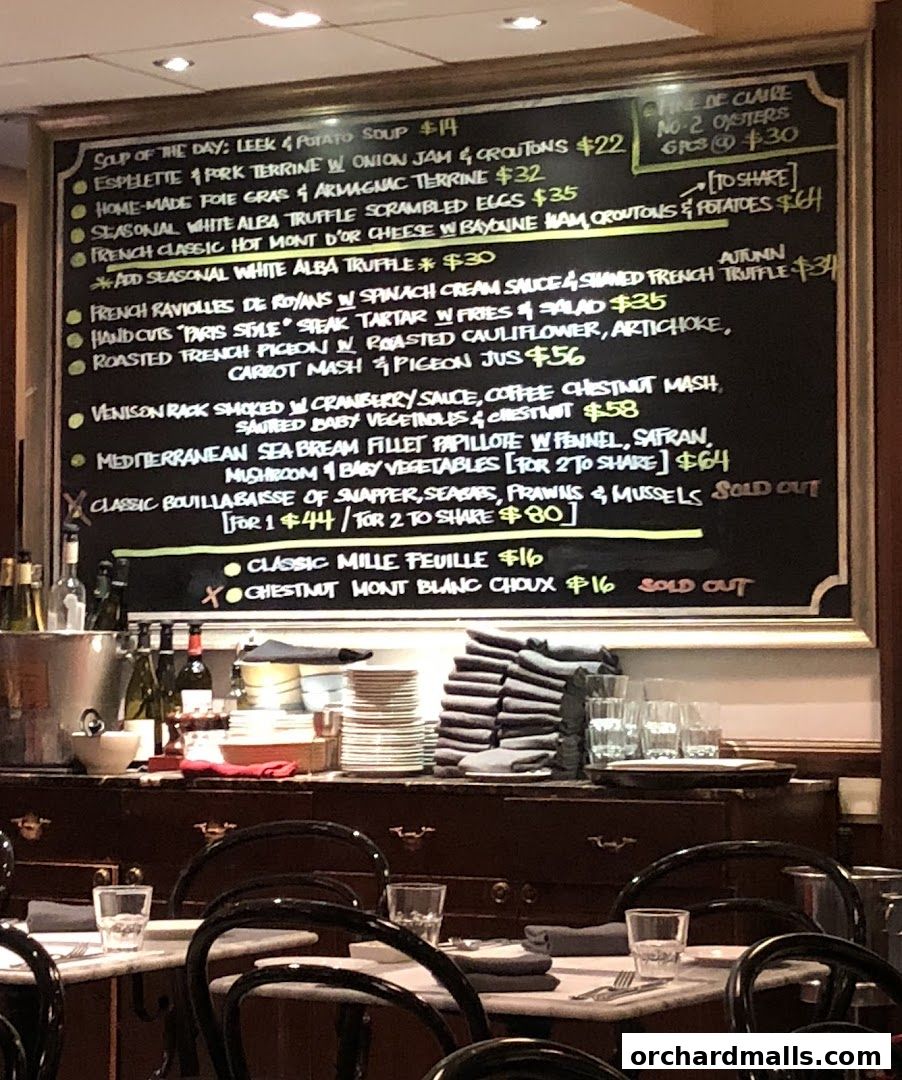 SOUP OF THE DAY: LEEK & POTATO SOUP $14
FINE DE CLAIRE
NO.2 OYSTERS
6PCS @ $30
ESPELETTE & PORK TERRINE W ONION JAM & CROUTONS $22
HOME-MADE FOIE GRAS & ARMAGNAC TERRINE $32
SEASONAL WHITE ALBA TRUFFLE SCRAMBLED EGGS $35
[TO SHARE]
FRENCH CLASSIC HOT MONT D'OR CHEESE W BAYONNE HAM, CROUTONS & POTATOES $64
*ADD SEASONAL WHITE ALBA TRUFFLE* $30
AUTUMN
FRENCH RAVIOLLES DE ROYANS W SPINACH CREAM SAUCE & SHAVED FRENCH TRUFFLE $34
HANDCUTS "PARIS STYLE" STEAK TARTAR W FRIES & SALAD $35
ROASTED FRENCH PIGEON W ROASTED CAULIFLOWER, ARTICHOKE,
CARROT MASH & PIGEON JUS $56
VENISON RACK SMOKED W CRANBERRY SAUCE, COFFEE CHESTNUT MASH,
SAUTEED BABY VEGETABLES & CHESTNUT $58
MEDITERRANEAN SEA BREAM FILLET PAPILLOTE W FENNEL, SAFRAN,
MUSHROOM & BABY VEGETABLES [FOR 2 TO SHARE] $64
X CLASSIC BOUILLABAISSE OF SNAPPER, SEABASS, PRAWNS & MUSSELS SOLD OUT
[FOR 1 $44 / FOR 2 TO SHARE $80]
CLASSIC MILLE FEUILLE $16
X CHESTNUT MONT BLANC CHOUX $16 SOLD OUT
orchardmalls.com